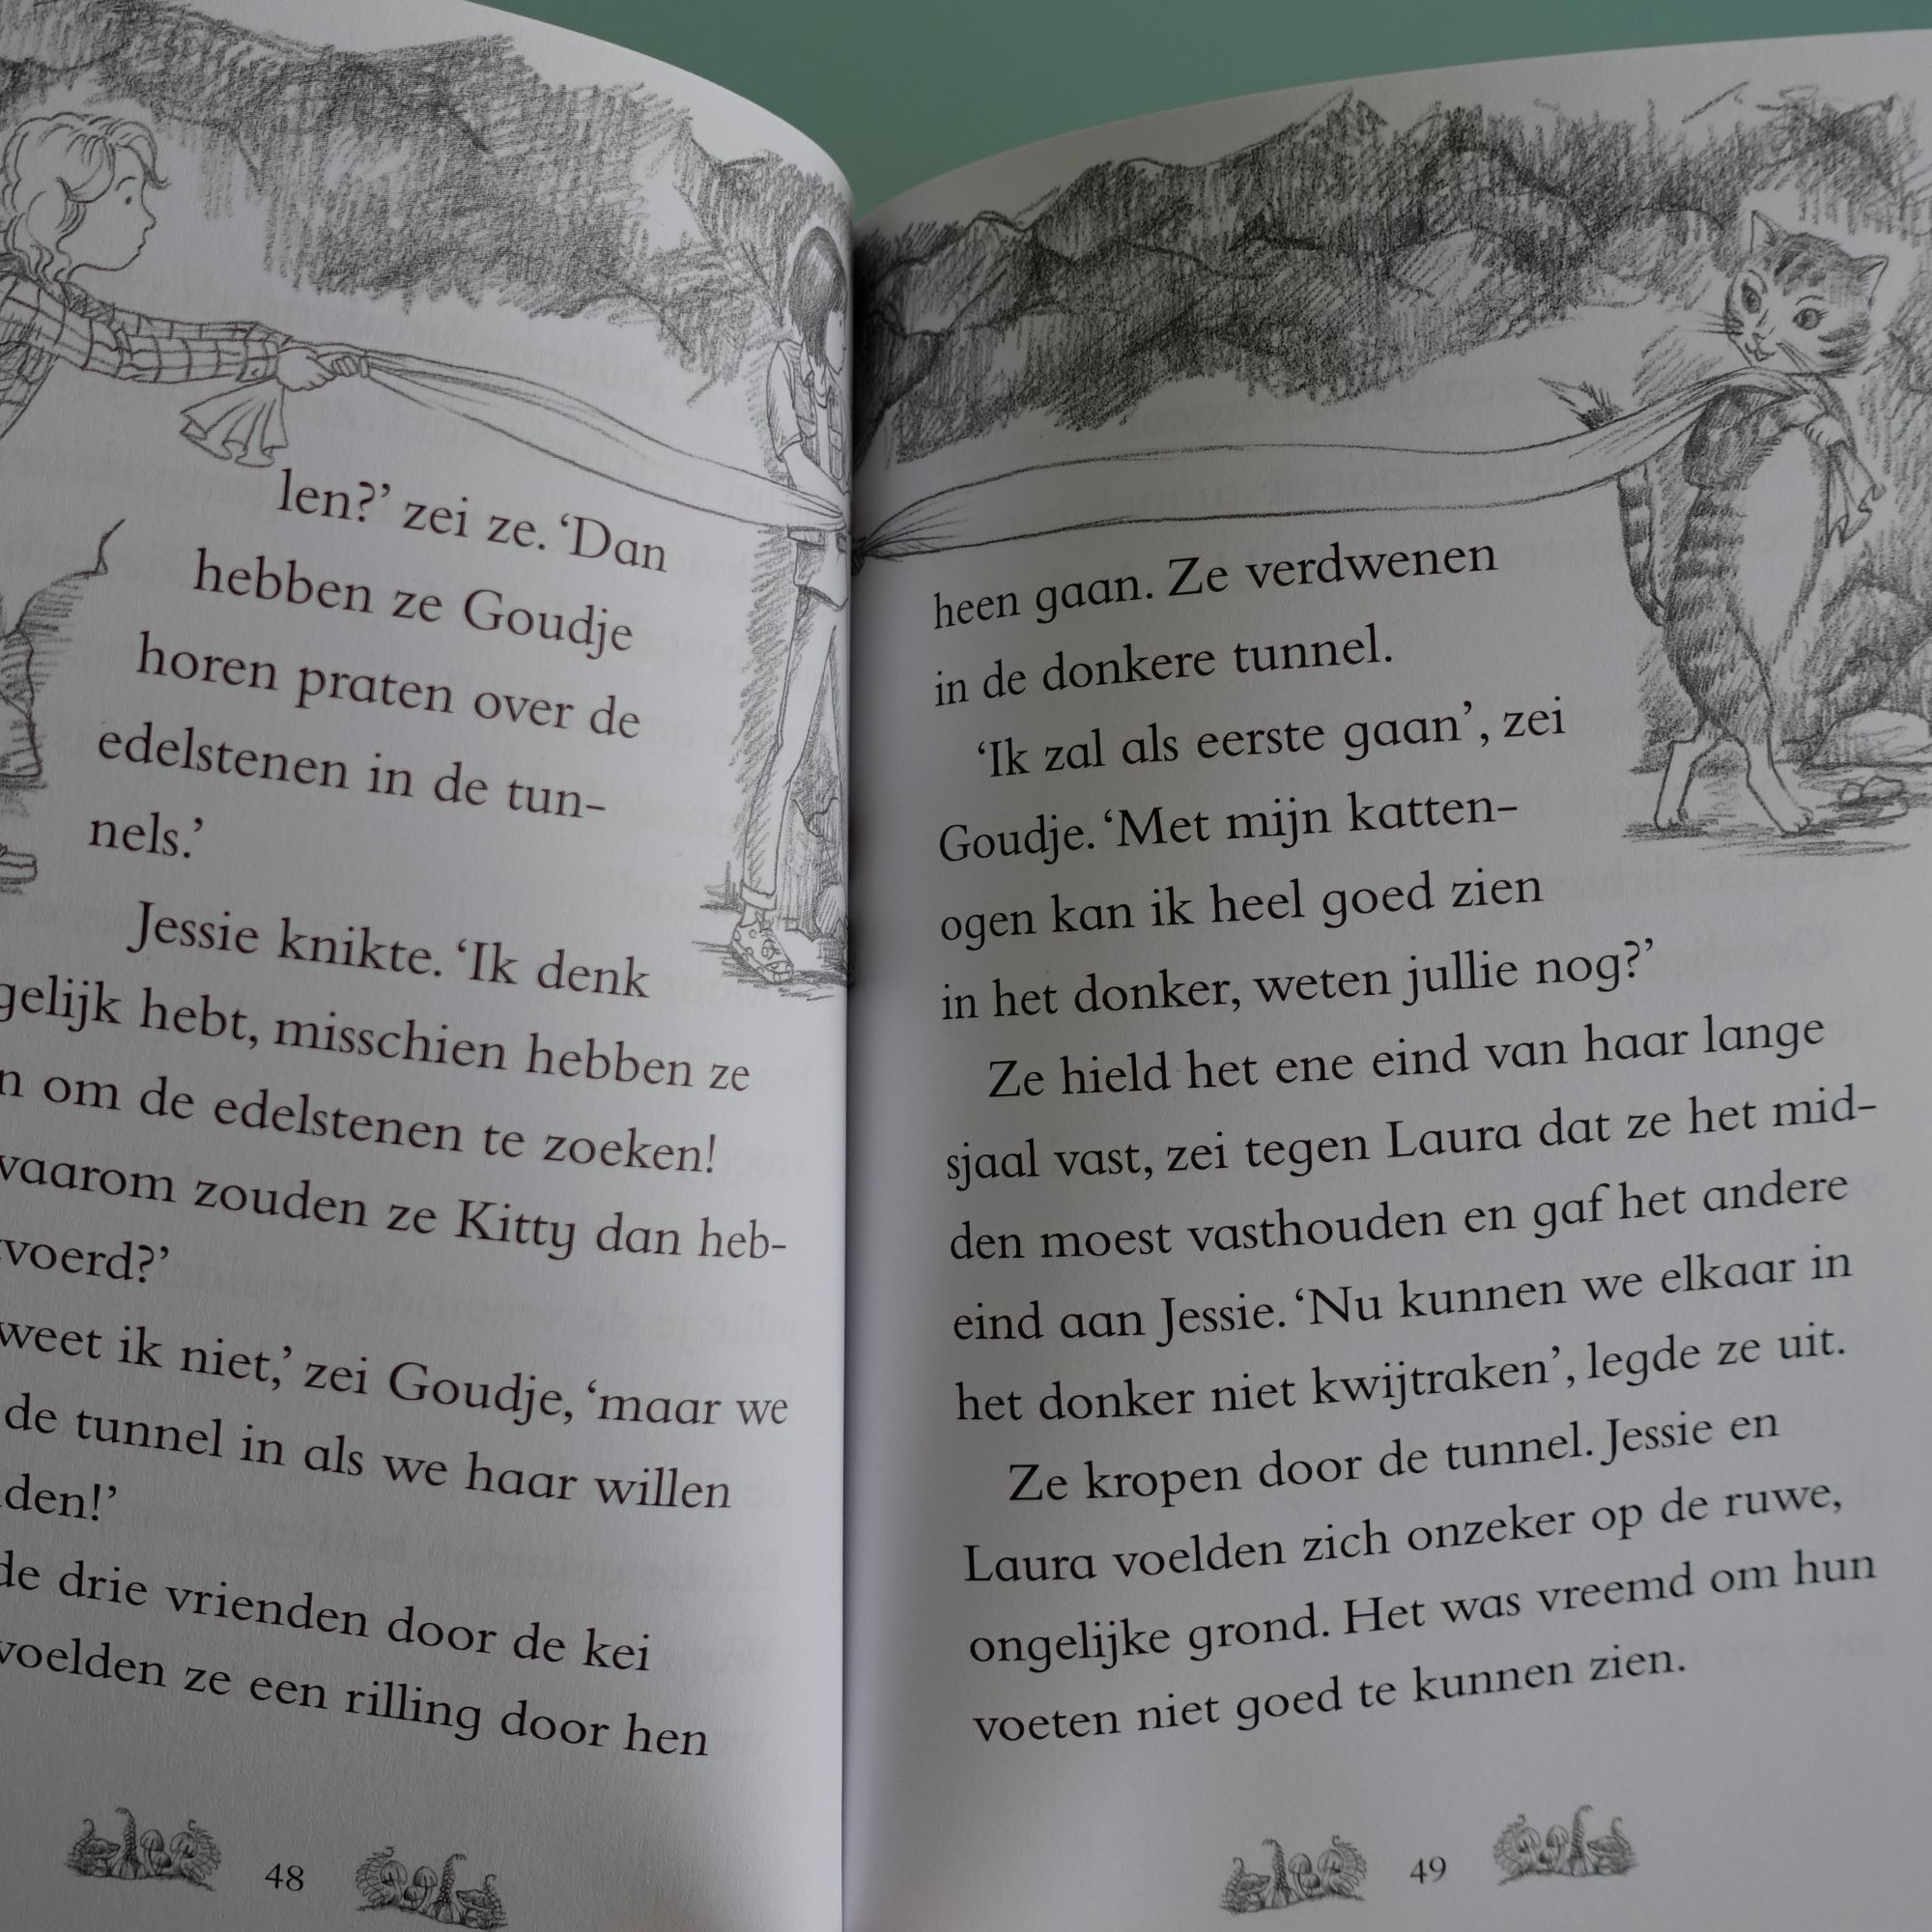 len?’ zei ze. ‘Dan
hebben ze Goudje
horen praten over de
edelstenen in de tun-
nels.’
Jessie knikte. ‘Ik denk
gelijk hebt, misschien hebben ze
om de edelstenen te zoeken!
zouden ze Kitty dan heb-
weet ik niet,’ zei Goudje, ‘maar we
de tunnel in als we haar willen
de drie vrienden door de kei
voelden ze een rilling door hen
48
heen gaan. Ze verdwenen
in de donkere tunnel.
‘Ik zal als eerste gaan’, zei
Goudje. ‘Met mijn katten-
ogen kan ik heel goed zien
in het donker, weten jullie nog?’
Ze hield het ene eind van haar lange
sjaal vast, zei tegen Laura dat ze het mid-
den moest vasthouden en gaf het andere
eind aan Jessie. ‘Nu kunnen we elkaar in
het donker niet kwijtraken’, legde ze uit.
Ze kropen door de tunnel. Jessie en
Laura voelden zich onzeker op de ruwe,
ongelijke grond. Het was vreemd om hun
voeten niet goed te kunnen zien.
49